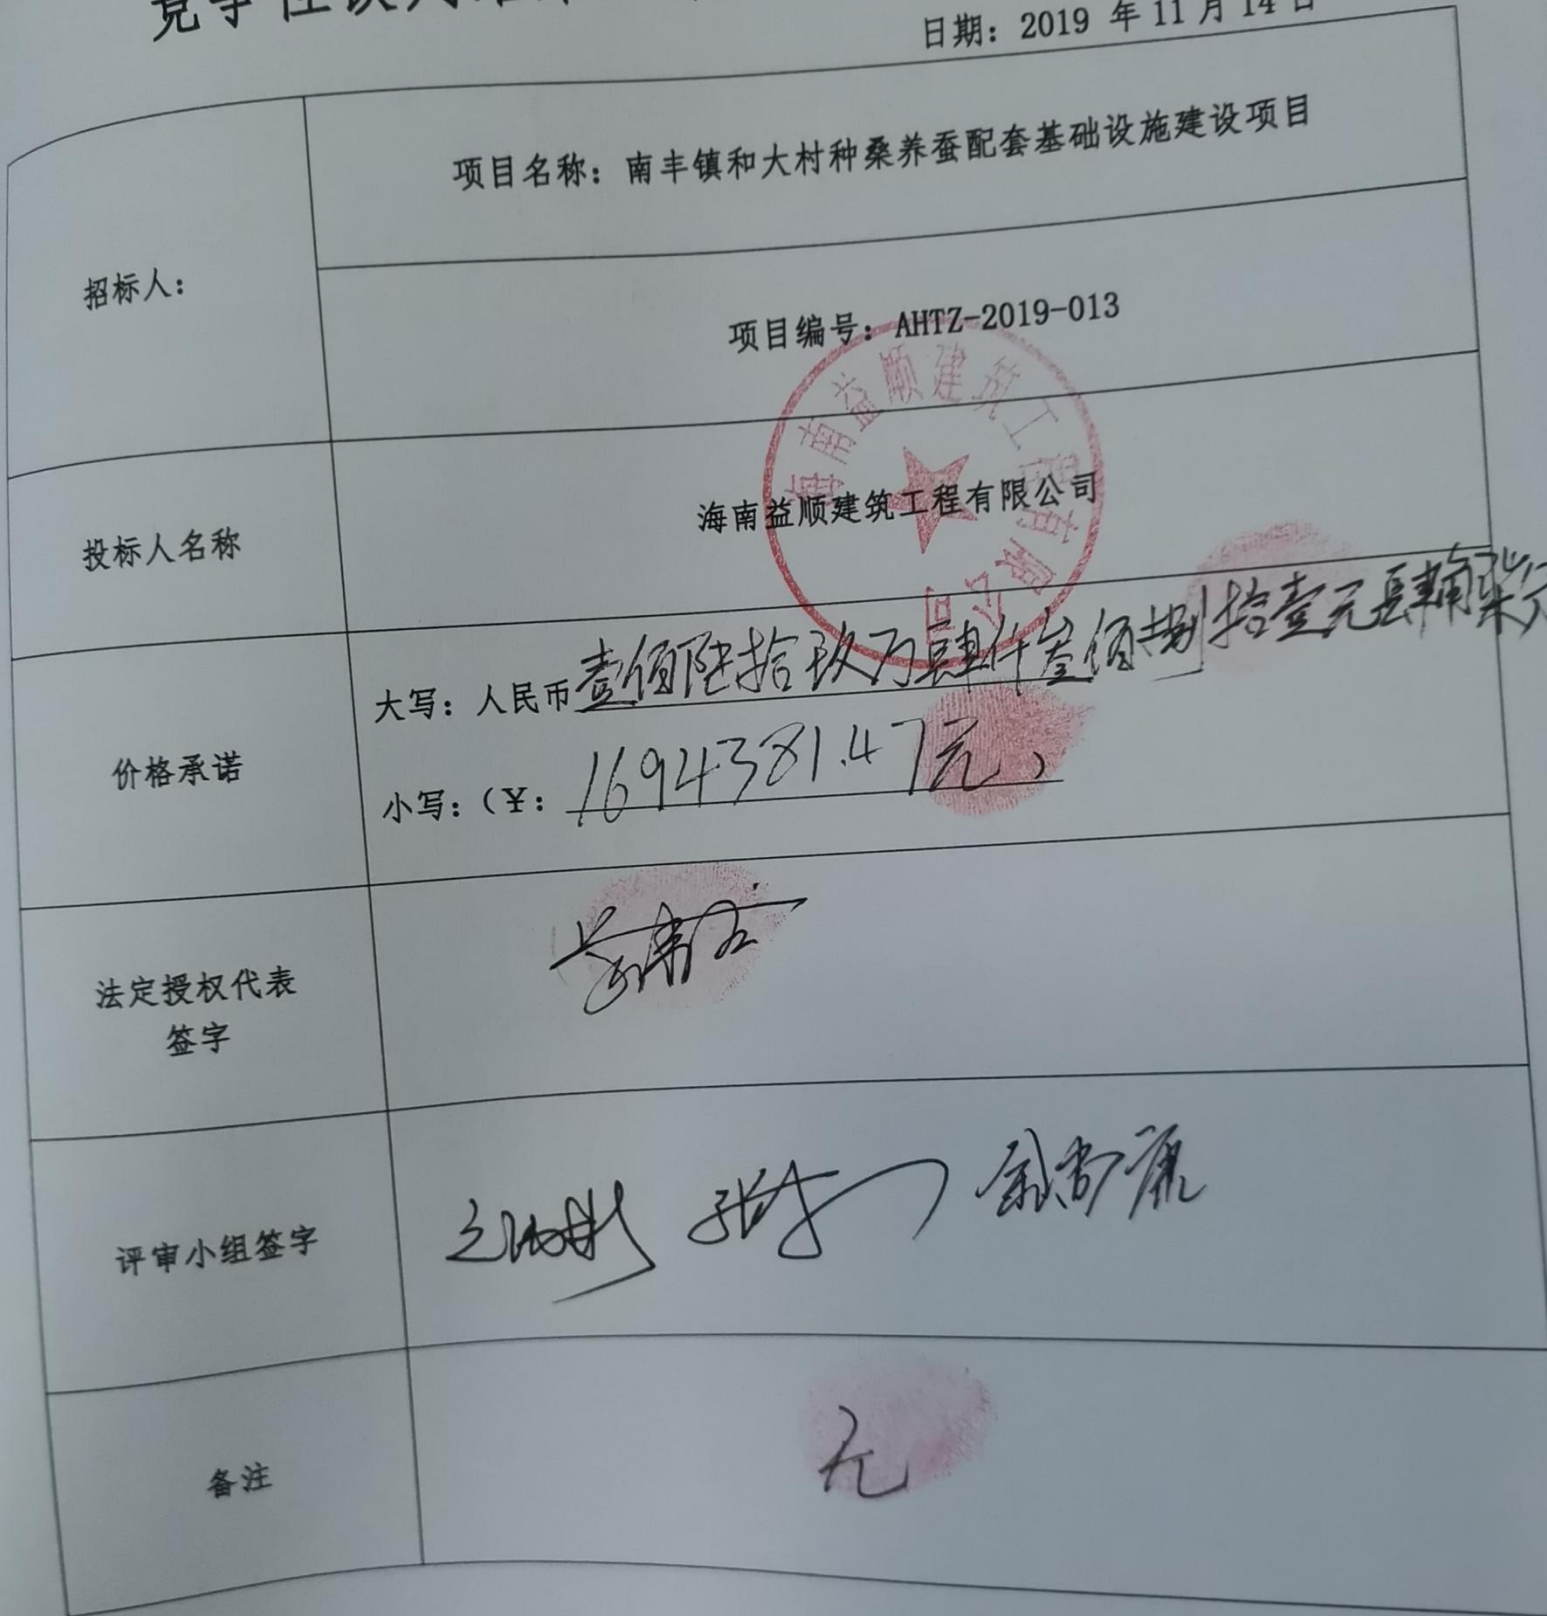 日期：2019 年 11 月 14 日
招标人：
项目名称：南丰镇和大村种桑养蚕配套基础设施建设项目
项目编号：AHTZ-2019-013
投标人名称
海南益顺建筑工程有限公司
海南益顺建筑工程有限公司
价格承诺
大写：人民币壹佰陆拾玖万肆仟叁佰捌拾壹元肆角柒分
小写：（¥：1694381.47元
法定授权代表
签字
评审小组签字
备注
无